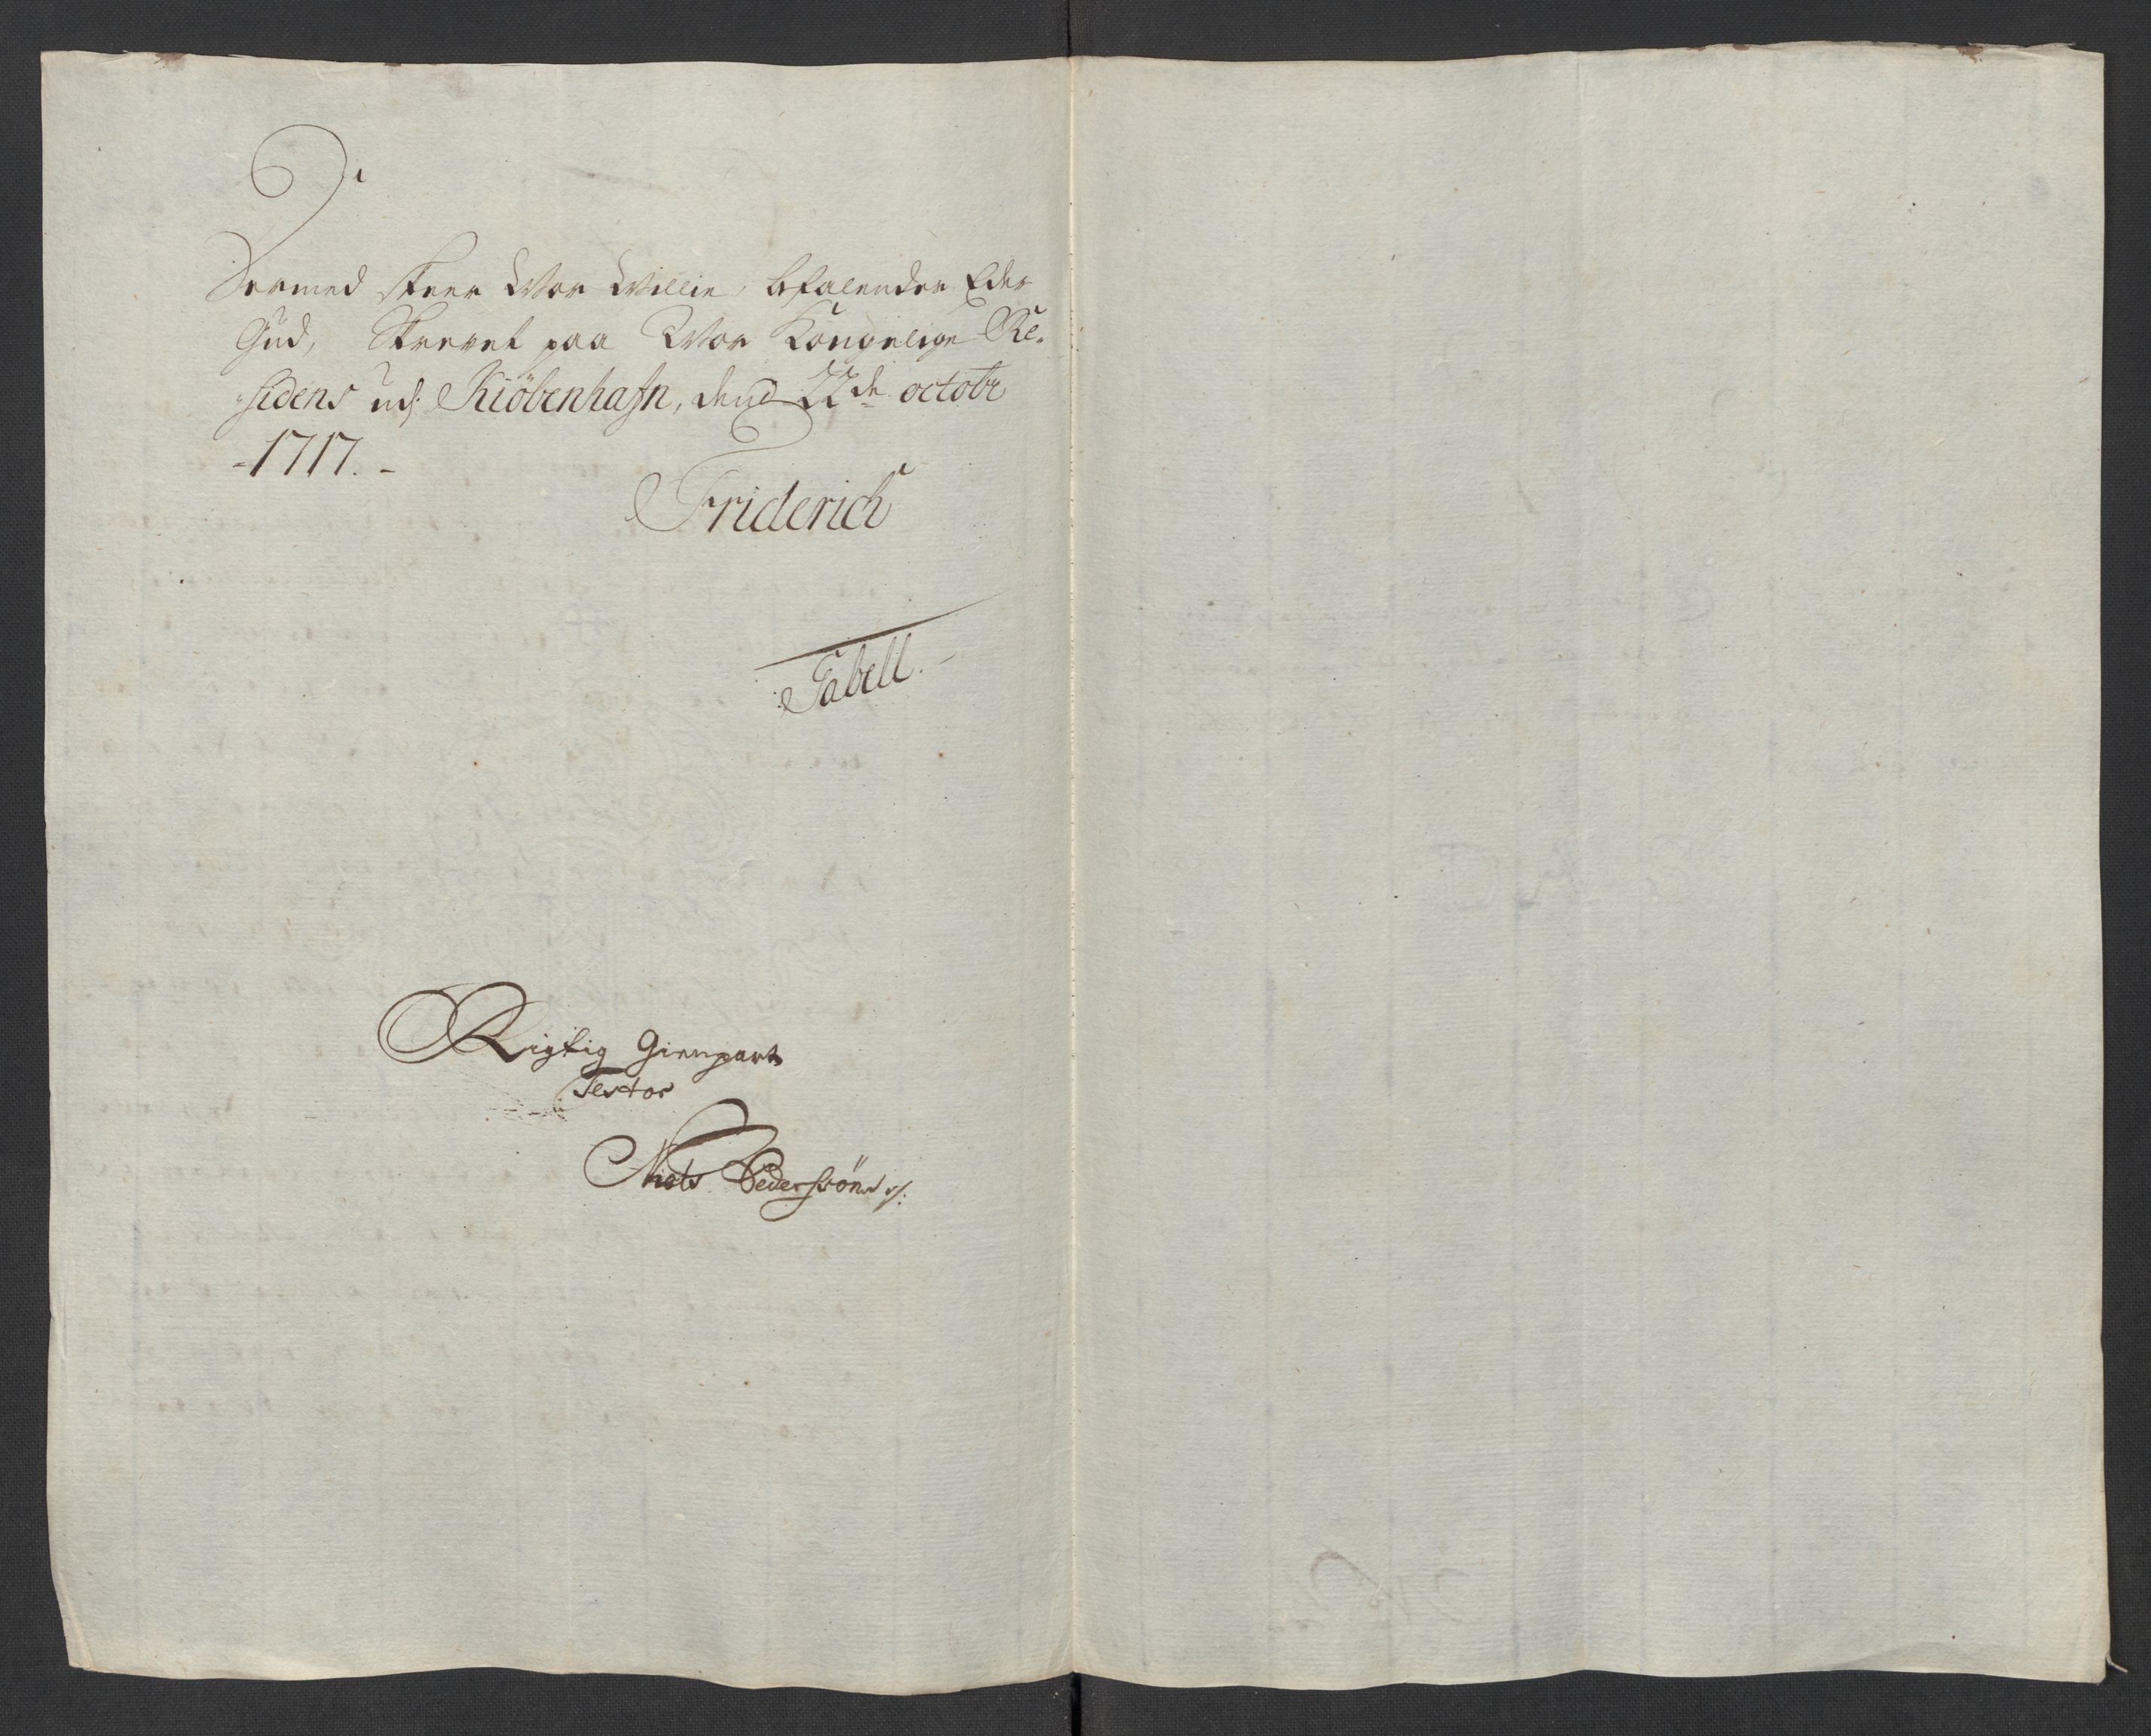 Dermed skeer Wor Willie, befalendes Eder
Gud, Skrevet paa Wor Kongelige Re-
sidens udj Kiöbenhafn, dend 22de octobr
-1717.-
Friderich
Tabell.-
Rigtig Gienpart
Testor
Niels Pederssön